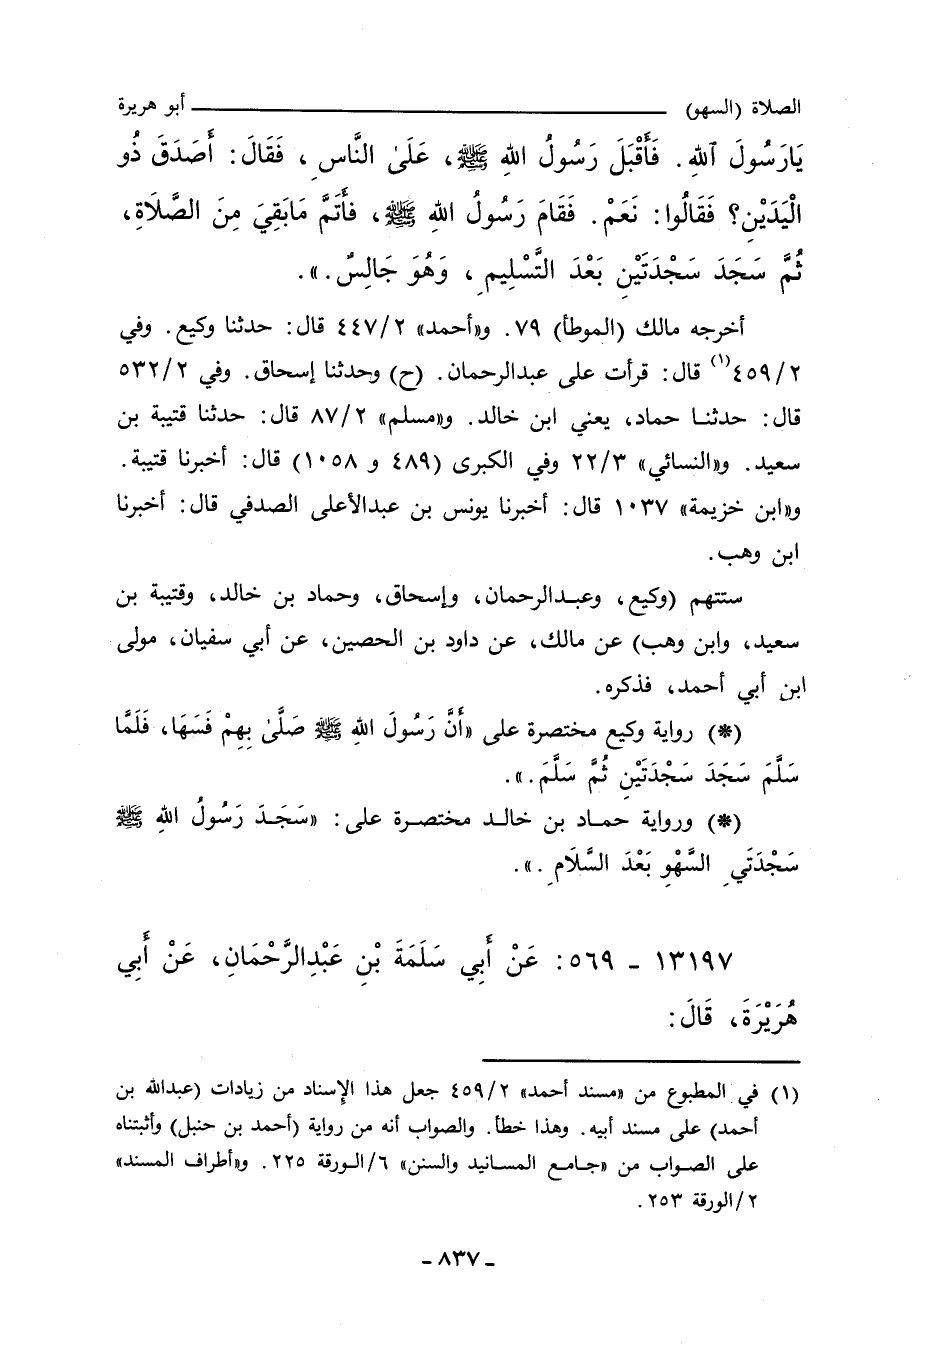 الصلاة (السهو) ــــــــ أبو هريرة
يَارَسُولَ ٱللهِ. فَأَقْبَلَ رَسُولُ اللهِ ﷺ، عَلَىٰ النَّاسِ، فَقَالَ: أَصَدَقَ ذُو
الْيَدَيْنِ؟ فَقَالُوا: نَعَمْ. فَقَامَ رَسُولُ اللهِ ﷺ، فَأَتَمَّ مَابَقِيَ مِنَ الصَّلَاةِ،
ثُمَّ سَجَدَ سَجْدَتَيْنِ بَعْدَ التَّسْلِيمِ، وَهُوَ جَالِسٌ.».
أخرجه مالك (الموطأ) ٧٩. و«أحمد» ٤٤٧/٢ قال: حدثنا وكيع. وفي
٤٥٩/٢(١) قال: قرأت على عبدالرحمان. (ح) وحدثنا إسحاق. وفي ٥٣٢/٢
قال: حدثنا حماد، يعني ابن خالد. و«مسلم» ٨٧/٢ قال: حدثنا قتيبة بن
سعيد. و«النسائي» ٢٢/٣ وفي الكبرى (٤٨٩ و ١٠٥٨) قال: أخبرنا قتيبة.
و«ابن خزيمة» ١٠٣٧ قال: أخبرنا يونس بن عبدالأعلى الصدفي قال: أخبرنا
ابن وهب.
ستتهم (وكيع، وعبدالرحمان، وإسحاق، وحماد بن خالد، وقتيبة بن
سعيد، وابن وهب) عن مالك، عن داود بن الحصين، عن أبي سفيان، مولى
ابن أبي أحمد، فذكره.
(*) رواية وكيع مختصرة على «أَنَّ رَسُولَ اللهِ ﷺ صَلَّىٰ بِهِمْ فَسَهَا، فَلَمَّا
سَلَّمَ سَجَدَ سَجْدَتَيْنِ ثُمَّ سَلَّمَ.».
(*) ورواية حماد بن خالد مختصرة على: «سَجَدَ رَسُولُ اللهِ ﷺ
سَجْدَتَيِ السَّهْوِ بَعْدَ السَّلَامِ.».
١٣١٩٧ - ٥٦٩: عَنْ أَبِي سَلَمَةَ بْنِ عَبْدِالرَّحْمَانِ، عَنْ أَبِي
هُرَيْرَةَ، قَالَ:
(١) في المطبوع من «مسند أحمد» ٤٥٩/٢ جعل هذا الإسناد من زيادات (عبدالله بن
أحمد) على مسند أبيه. وهذا خطأ. والصواب أنه من رواية (أحمد بن حنبل) وأثبتناه
على الصواب من «جامع المسانيد والسنن» ٦/الورقة ٢٢٥. و«أطراف المسند»
٢/الورقة ٢٥٣.
- ٨٣٧ -